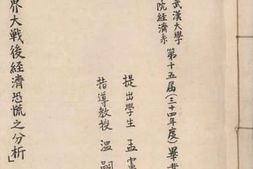 武漢大學
院經濟系
第十五屆(三十四年度)畢業
提出學生 孟憲
指導教授 溫嗣
界大戰後經濟恐慌之分析」